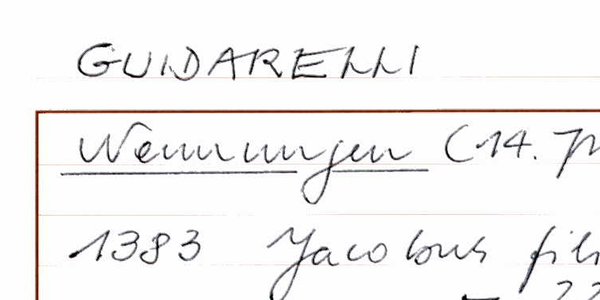 GUIDARELLI
Nennungen (14.
1383 Jacobus fili